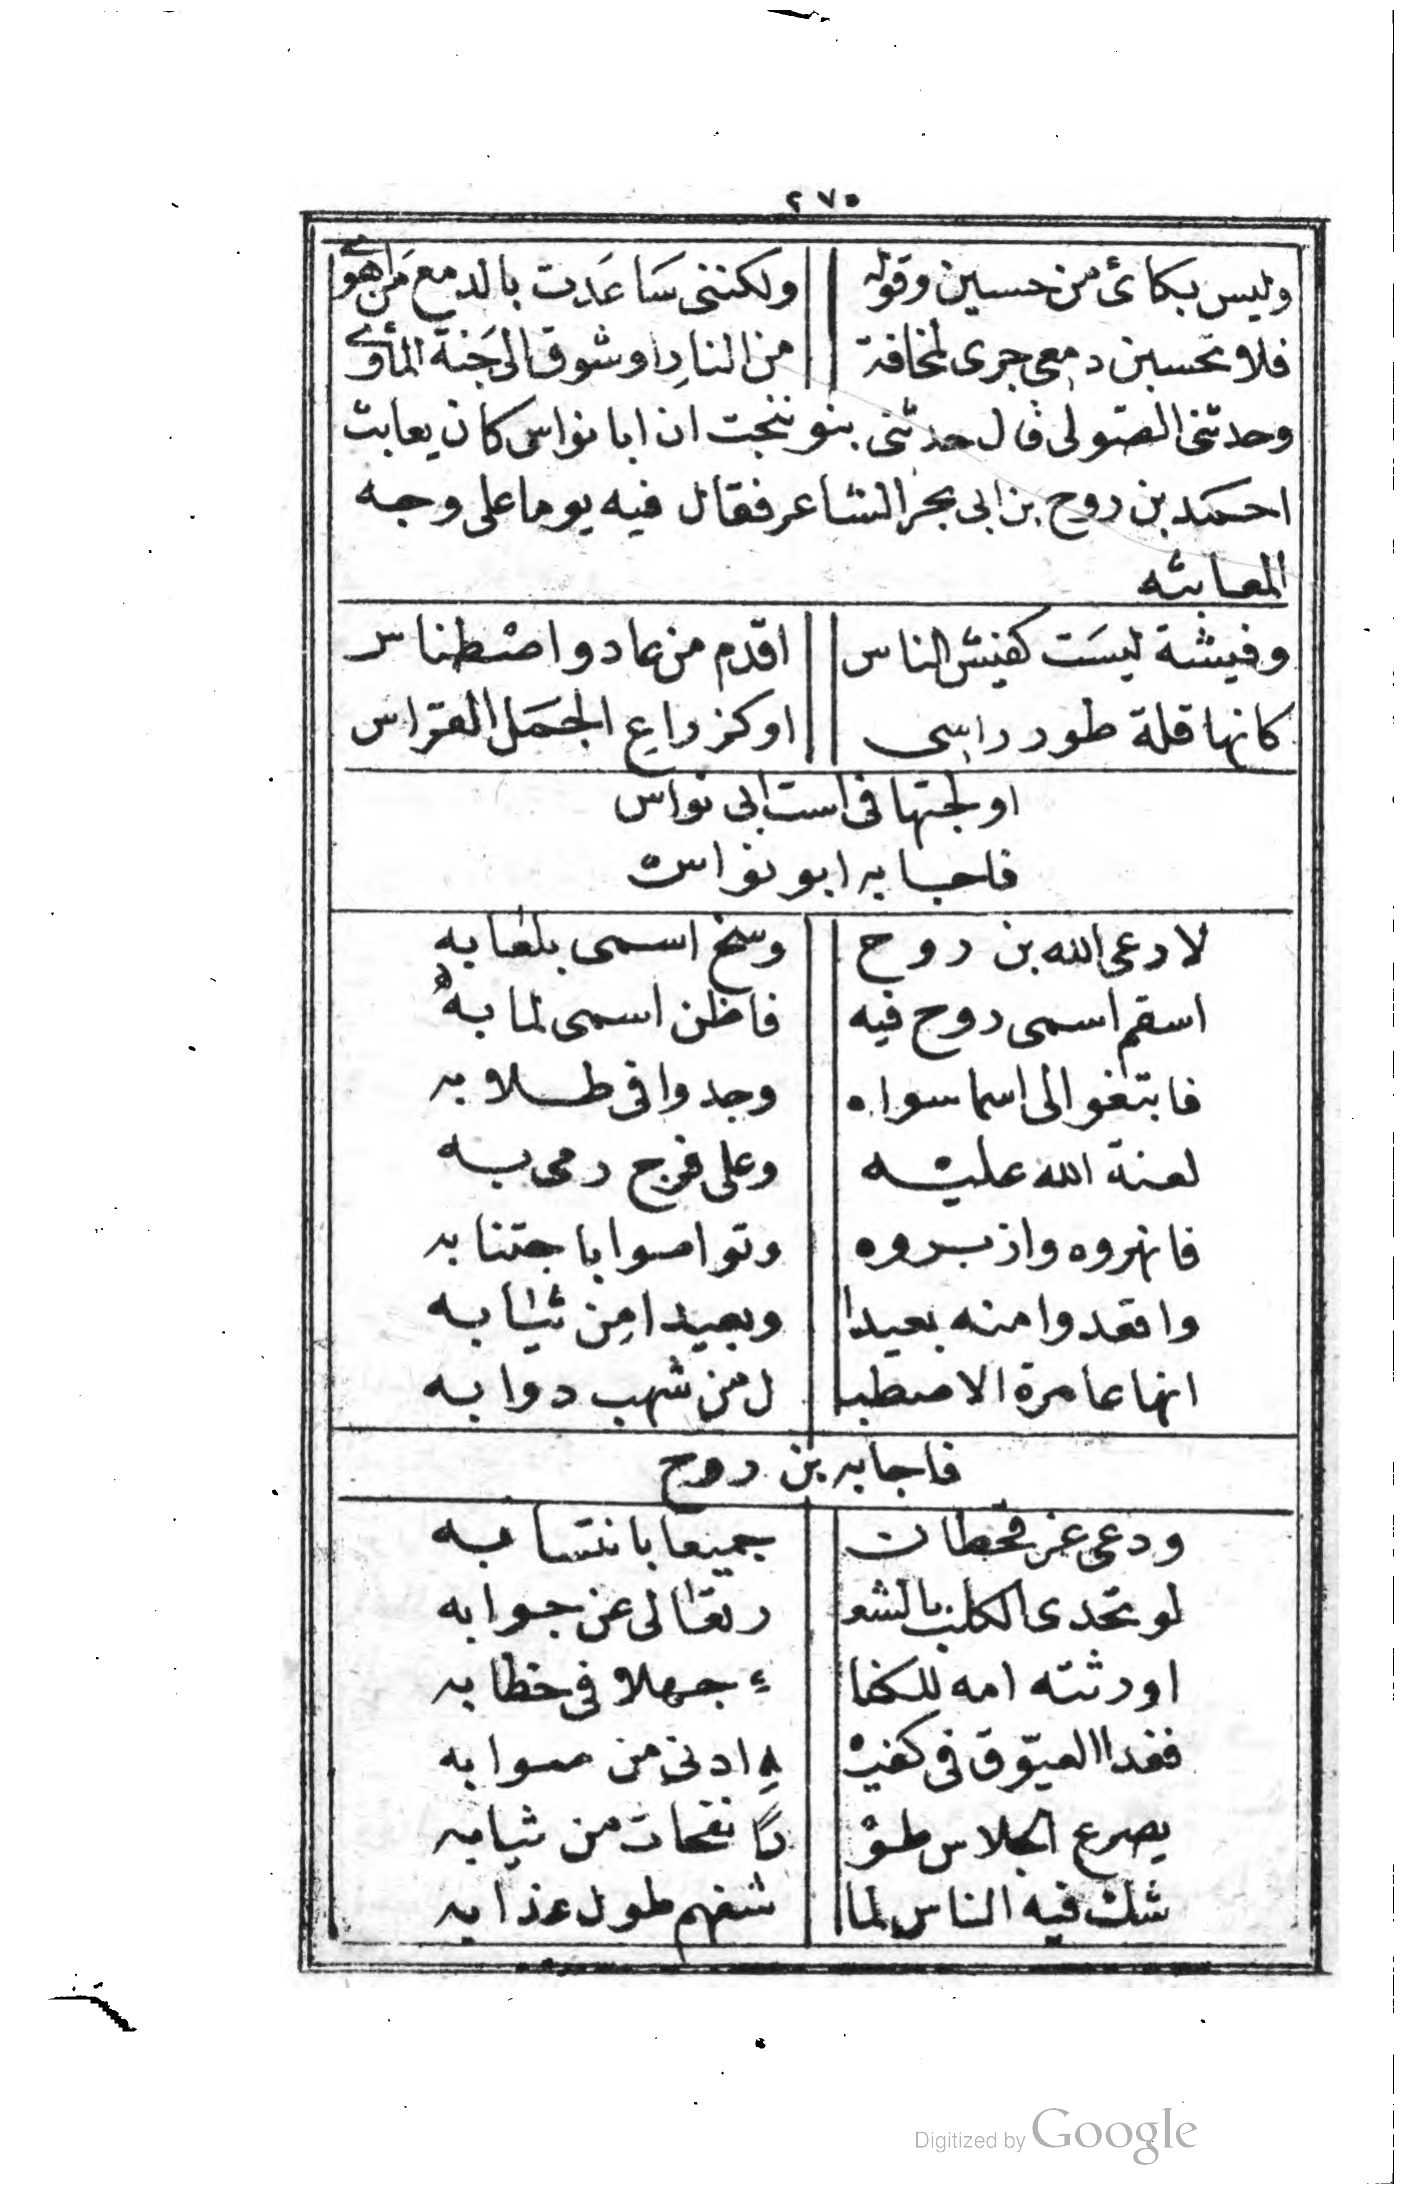 ٢٧٥
وليس بكائى من حسين وقوله ولكننى سَاعَدت بالدمع مَن اهوى
فلا تحسبن دمعى جرى لمخافة من النارِ او شوق الى جَنة المأوى
وحدثنى الصّولى قال حدثنى بنو نبخت ان ابا نواس كان يعابث
احمَد بن روح بن ابى بحر الشاعر فقال فيه يوما على وجه
المعابثه
وفيشة ليسَت كفيش الناس اقدم من عاد واصْطناس
كانها قلة طور راسى او كزراعِ الجمَل القرّاس
اولجتها فى است ابى نواس
فاجابه ابو نواس
لا رعى الله بن روح وسخ اسمى بلعابه
اسقم اسمى روح فيه فاظن اسمى لما به
فابتغوا لى اسما سواه وجدوا فى طلابه
لعنة الله عليه وعلى فرج رمى به
فانهروه وازبروه وتواصوا باجتنابه
واقعدوا منه بعيدا وبعيدا مِن ثيابه
انها عامرة الاصطبـ ل من شهب دوابه
فاجابه بن روح
ودعى عن قحطان جميعا بانتسابه
لو تحدى الكلب بالشعـ ر تعالى عن جوابه
اورثته امه للكنا ءِ جهلا فى خطابه
فغدا العيّوق فى كفيْـ هِ ادنى من صوابه
يصرع الجلاس طوْ رًا نفحات من ثيابه
شك فيه الناس لما شفهم طول عذابه
Digitized by Google